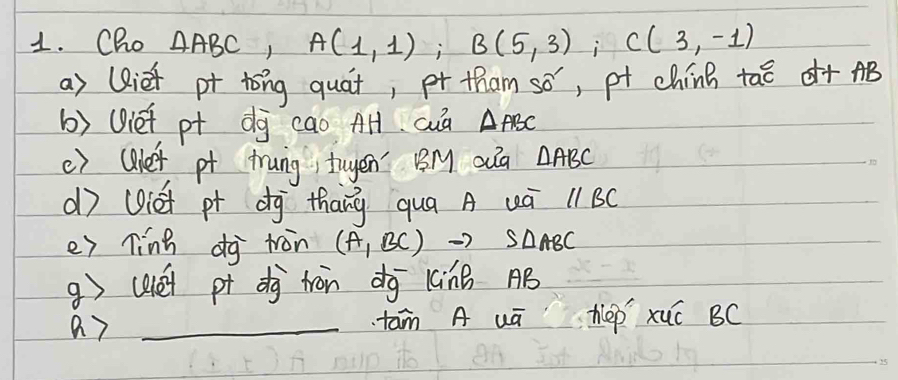 1. Cho ΔABC, A(1,1); B(5,3); C(3,-1)
a) Viết pt tổng quát, pt tham số, pt chính tắc đt AB
b) Viết pt đg cao AH của ΔABC
c) Viết pt trung tuyến BM của ΔABC
d) Viết pt đg thẳng qua A và // BC
e) Tính đg tròn (A, BC) → SΔABC
g) Viết pt đg tròn đg kính AB
h) ____________ tâm A và tiếp xúc BC